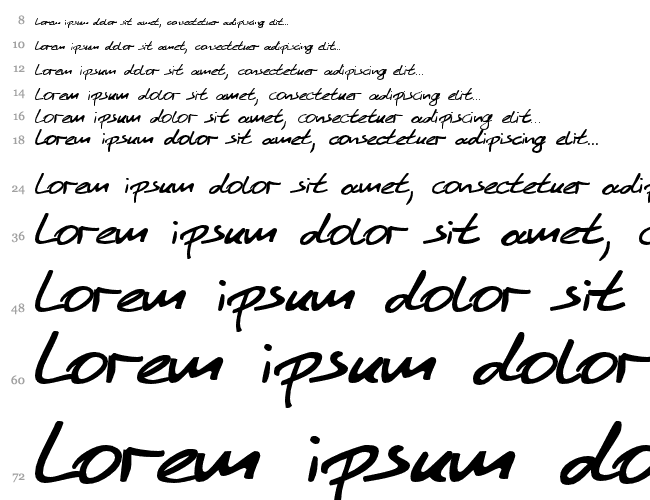 8 Lorem ipsum dolor sit amet, consectetuer adipiscing elit...
10 Lorem ipsum dolor sit amet, consectetuer adipiscing elit...
12 Lorem ipsum dolor sit amet, consectetuer adipiscing elit...
14 Lorem ipsum dolor sit amet, consectetuer adipiscing elit...
16 Lorem ipsum dolor sit amet, consectetuer adipiscing elit...
18 Lorem ipsum dolor sit amet, consectetuer adipiscing elit...
24 Lorem ipsum dolor sit amet, consectetuer adip
36 Lorem ipsum dolor sit amet, c
48 Lorem ipsum dolor sit
60 Lorem ipsum dolor
72 Lorem ipsum do